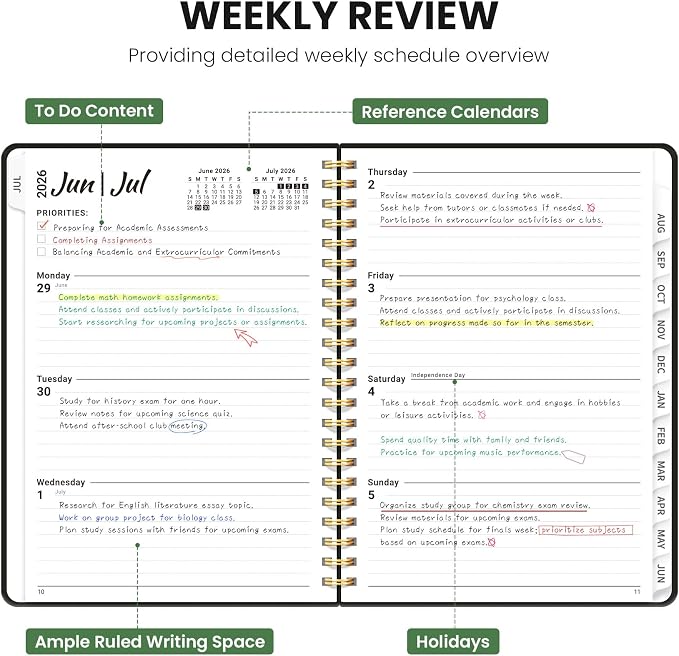 WEEKLY REVIEW
Providing detailed weekly schedule overview
To Do Content
Reference Calendars
JUL
2026
Jun | Jul
June 2026
S M T W T F S
1 2 3 4 5 6
7 8 9 10 11 12 13
14 15 16 17 18 19 20
21 22 23 24 25 26 27
28 29 30
July 2026
S M T W T F S
1 2 3 4
5 6 7 8 9 10 11
12 13 14 15 16 17 18
19 20 21 22 23 24 25
26 27 28 29 30 31
PRIORITIES:
Preparing for Academic Assessments
Completing Assignments
Balancing Academic and Extracurricular Commitments
Monday
29 June
Complete math homework assignments.
Attend classes and actively participate in discussions.
Start researching for upcoming projects or assignments.
Tuesday
30
Study for history exam for one hour.
Review notes for upcoming science quiz.
Attend after-school club meeting.
Wednesday
1 July
Research for English literature essay topic.
Work on group project for biology class.
Plan study sessions with friends for upcoming exams.
10
Thursday
2
Review materials covered during the week.
Seek help from tutors or classmates if needed.
Participate in extracurricular activities or clubs.
Friday
3
Prepare presentation for psychology class.
Attend classes and actively participate in discussions.
Reflect on progress made so far in the semester.
Saturday Independence Day
4
Take a break from academic work and engage in hobbies
or leisure activities.
Spend quality time with family and friends.
Practice for upcoming music performance.
Sunday
5
Organize study group for chemistry exam review.
Review materials for upcoming exams.
Plan study schedule for finals week: prioritize subjects
based on upcoming exams.
11
AUG
SEP
OCT
NOV
DEC
JAN
FEB
MAR
APR
MAY
JUN
Ample Ruled Writing Space
Holidays